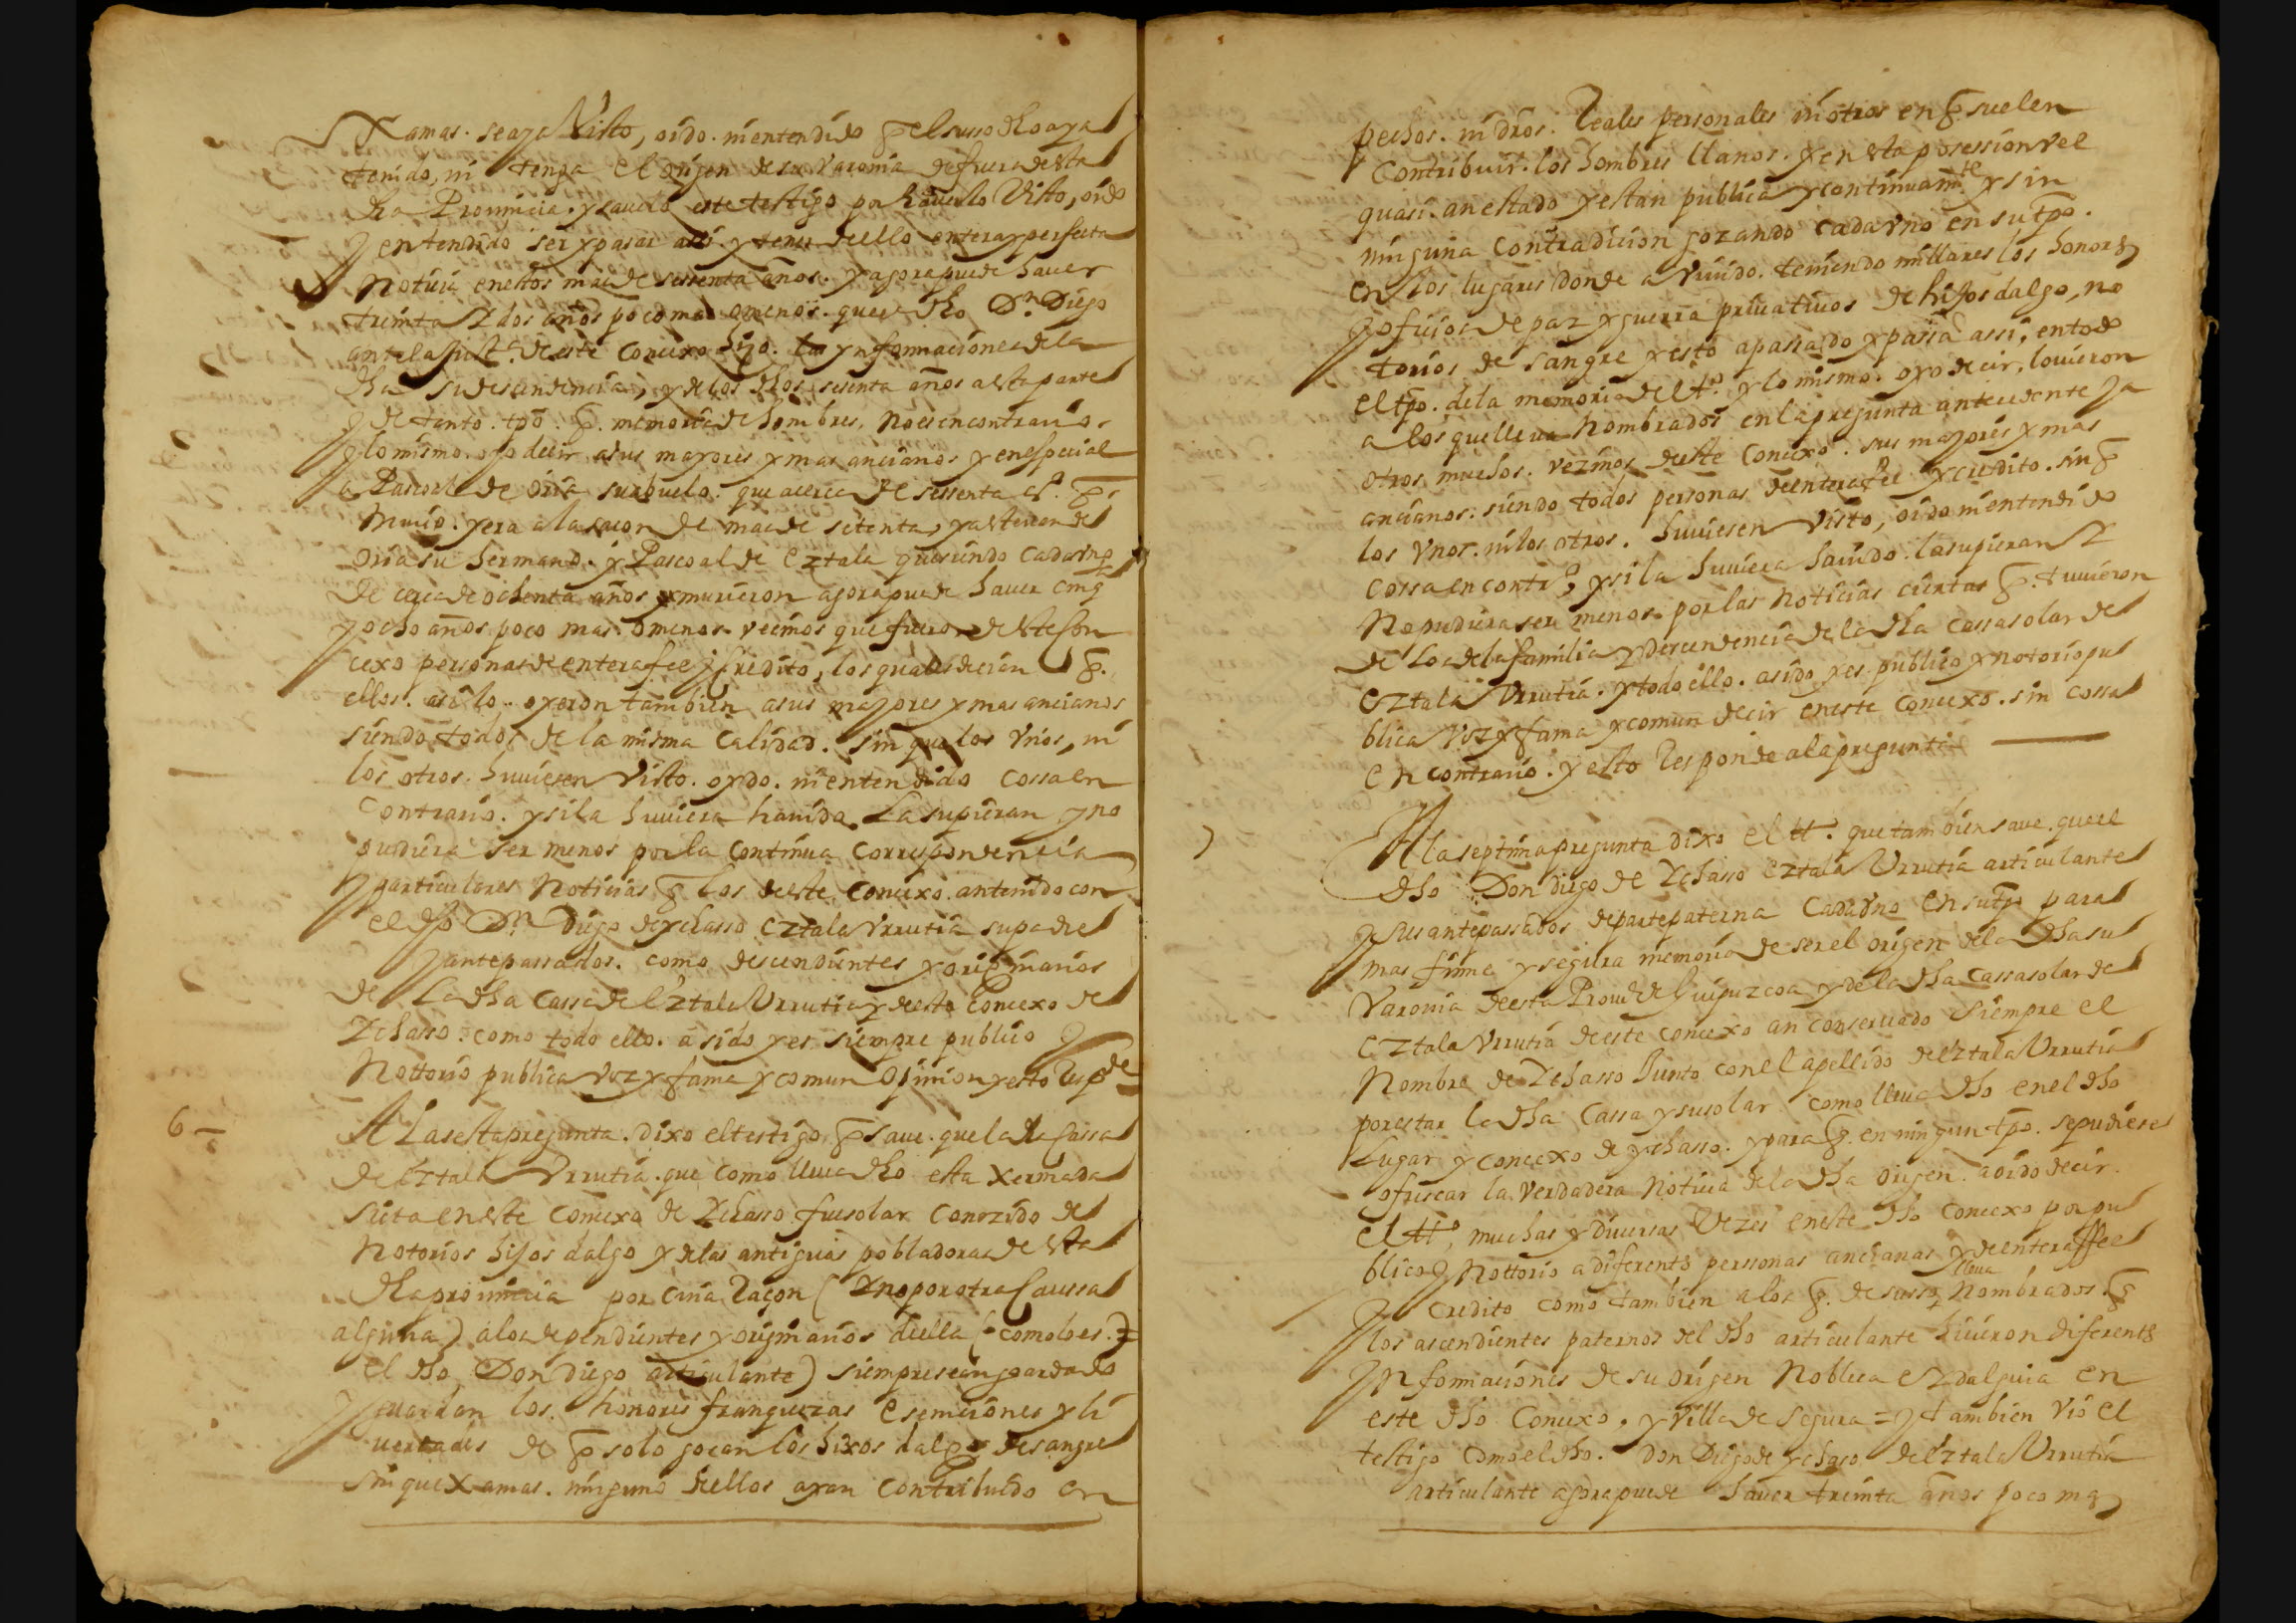 Xamas. se aya Visto, oido. ni entendido q̃ el susso dho aya
tenido, ni tenga el origen de su Varonia de fuera de esta
dha Prouincia. y sauelo este testigo por hauerlo Visto, oido
y entendido ser y pasar assi. y tener de ello entera y perfecta
Noticia en estos mas de sessenta años. y agora puede hauer
treinta y dos años poco mas o menos. que el dho Dn. Diego
ante la Justa. de este Concexo hizo. las ynformaciones de la
dha su descendencia, y de los dhos sesenta años a esta parte
y de tanto. tpo. q̃. memoria de hombres. No es en contrario.
y lo mismo. oyo decir a sus mayores y mas ancianos y en especial
a Pascoal de Oria su abuelo. que acerca de sessenta as. q̃.
Murio. y era a la sacon de mas de setenta, y a esteuan de
Oria su hermano. y Pascoal de Eztala que siendo cada vno
de cerca de ochenta años murieron agora puede hauer cinqta
y ocho años poco mas. o menos. vecinos que fueron de este Con
cexo personas de entera fee y Credito, los quales decian q̃.
ellos. asi lo. oyeron tambien a sus mayores y mas ancianos
siendo todos de la misma Calidad. sin que los Vnos, ni
los otros. huuiesen Visto. oydo. ni entendido cossa en
Contrario. y si la huuiera hauido. La supieran y no
pudiera ser menos por la continua correspondencia
y particulares Noticias q̃ los de este Concexo. an tenido con
el dho Dn. Diego de ychasso Eztala Vrrutia su padre
y antepassados. como descendientes y originarios
de La dha Cassa de Eztala Vrrutia y de este Concexo de
Ychasso. como todo ello. a sido y es siempre publico y
Nottorio publica voz y fama y comun opinion y esto Respde
6 A La sesta pregunta. dixo el testigo q̃ saue. que la dha Cassa
de Eztala Vrrutia. que como lleua dho esta Xermada
sita en este Concexo de Ychasso fue solar Conozido de
Notorios hijos dalgo y de las antiguas pobladoras de esta
dha prouincia por cuia Raçon (Y no por otra Caussa
alguna) a los dependientes y originarios de ella (como lo es.
el dho Don Diego articulante) siempre se an goardado
y guardan los. honores franquezas esemciones y li
uertades de q̃ solo gocan los hixos dalgo de sangre
sin que Xamas. ninguno de ellos ayan Contribuido en
pechos. ni dros. Reales personales ni otros en q̃ suelen
Contribuir. los hombres llanos. y en esta posession vel
quasi. an estado y estan publica y continuamte y sin
ninguna contradicion gozando cada vno en su tpo.
en los lugares donde a viuido. teniendo millares los honores
y oficios de paz y guerra priuatiuos de hijos dalgo, no
torios de sangre y esto a passado y passa assi, en todo
el tpo. de la memoria de el to. y lo mismo. oyo decir, lo uieron
a los que lleua nombrados en la pregunta antecedente y a
otros muchos. vezinos de este Concexo. sus mayores y mas
ancianos. siendo todos personas de entera fee y credito. sin q̃
los Vnos. ni los otros. huuiesen visto, oido ni entendido
cossa en contro, y si la huuiera hauido. la supieran y
No pudiera ser menos. por las noticias ciertas q̃. tuuieron
de Los de la familia y descendencia de la dha cassa solar de
Eztala Vrrutia. y todo ello. a sido y es publico y notorio pu
blica voz y fama y comun decir en este Concexo. sin cossa
en contrario. y esto Responde a la pregunta
7 A la septima pregunta dixo el tto. que tambien saue. que el
dho Don Diego de Ychasso Eztala Vrrutia articulante
y sus antepassados de parte paterna cada vno en su tpo para
mas firme y segura memoria de ser el origen de la dha su
Varonia de esta Proua de Guipuzcoa y de la dha cassa solar de
Eztala Vrrutia de este concexo an conseruado siempre el
Nombre de Ychasso Junto con el apellido de Eztala Vrrutia
por estar la dha Cassa y su solar como lleua dho en el dho
Lugar y concexo de ychasso. y para q̃. en ningun tpo. se pudiese
ofuscar la verdadera Noticia de la dha origen. a oido decir.
el tto, muchas y diuersas Vezes en este dho concexo por pu
blico y Nottorio a diferentes personas ancianas y de entera ffee
y credito como tambien a los q̃. de susso lleua Nombrados q̃
los ascendientes paternos del dho articulante hicieron diferentes
Informaciones de su origen Nobleza e Ydalguia en
este dho Concexo. y Villa de Segura = y tambien vio el
testigo como el dho. Don Diego de ychaso de Eztala Vrrutia
articulante agora puede hauer treinta años poco mas